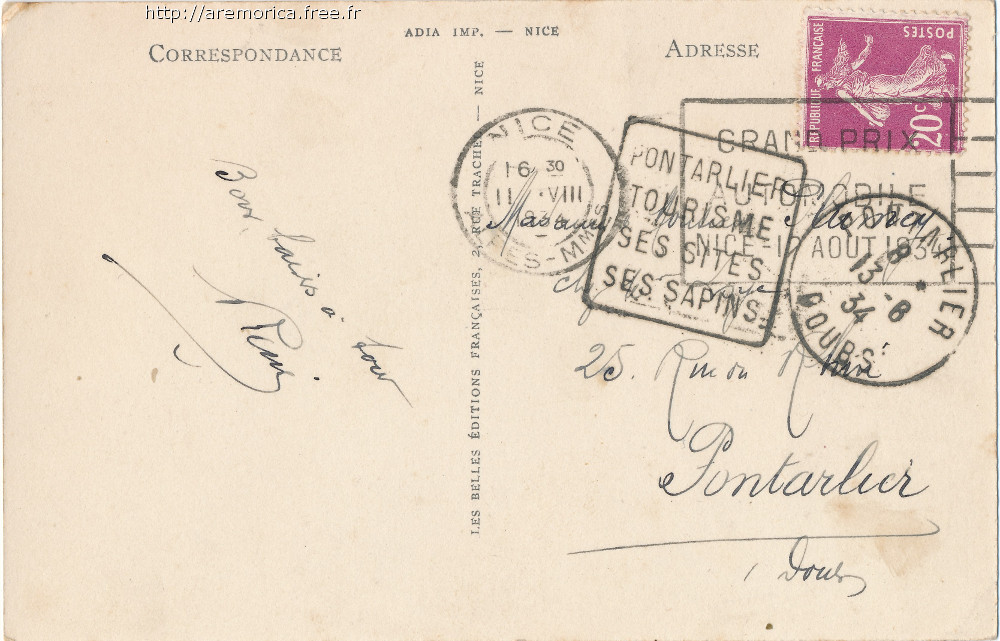 http://aremorica.free.fr
ADIA IMP. — NICE
CORRESPONDANCE
ADRESSE
RÉPUBLIQUE FRANÇAISE
POSTES
20c
NICE
16 30
11 VIII
34
PES-MMES
GRAND PRIX
AUTOMOBILE
NICE-19 AOUT 1934
PONTARLIER
TOURISME
SES SITES
SES SAPINS.
PONTARLIER
8
13-8
34
DOUBS
LES BELLES ÉDITIONS FRANÇAISES, 2, RUE TRACHEL — NICE
Bons baisers à tous
Madame
25
Pontarlier
Doubs